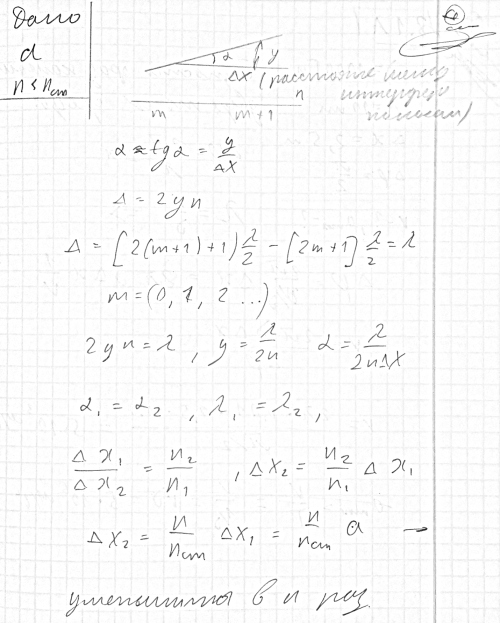 Дано
d
n < n_ст
α y
Δx (расстояние между
n интерфер
полосами)
m m+1
α ≈ tgα = y/Δx
Δ = 2yn
Δ = [2(m+1)+1) λ/2 - [2m+1] λ/2 = λ
m = (0, 1, 2 ...)
2yn = λ , y = λ/2n α = λ/2nΔx
α₁ = α₂ , λ₁ = λ₂ ,
Δx₁/Δx₂ = n₂/n₁ , Δx₂ = n₂/n₁ Δx₁
Δx₂ = n/n_ст Δx₁ = n/n_ст a —
уменьшится в n раз.